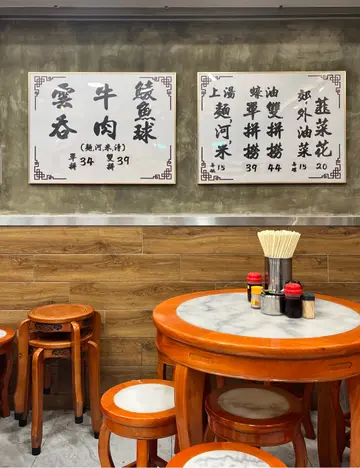 鯪魚球
牛肉
雲吞
(麵,河,米,淨)
單拼 34
雙拼 39
韮菜花
20
郊外油菜
15
蠔油
雙拼撈
44
單拼撈
39
上湯
麵,河米
15